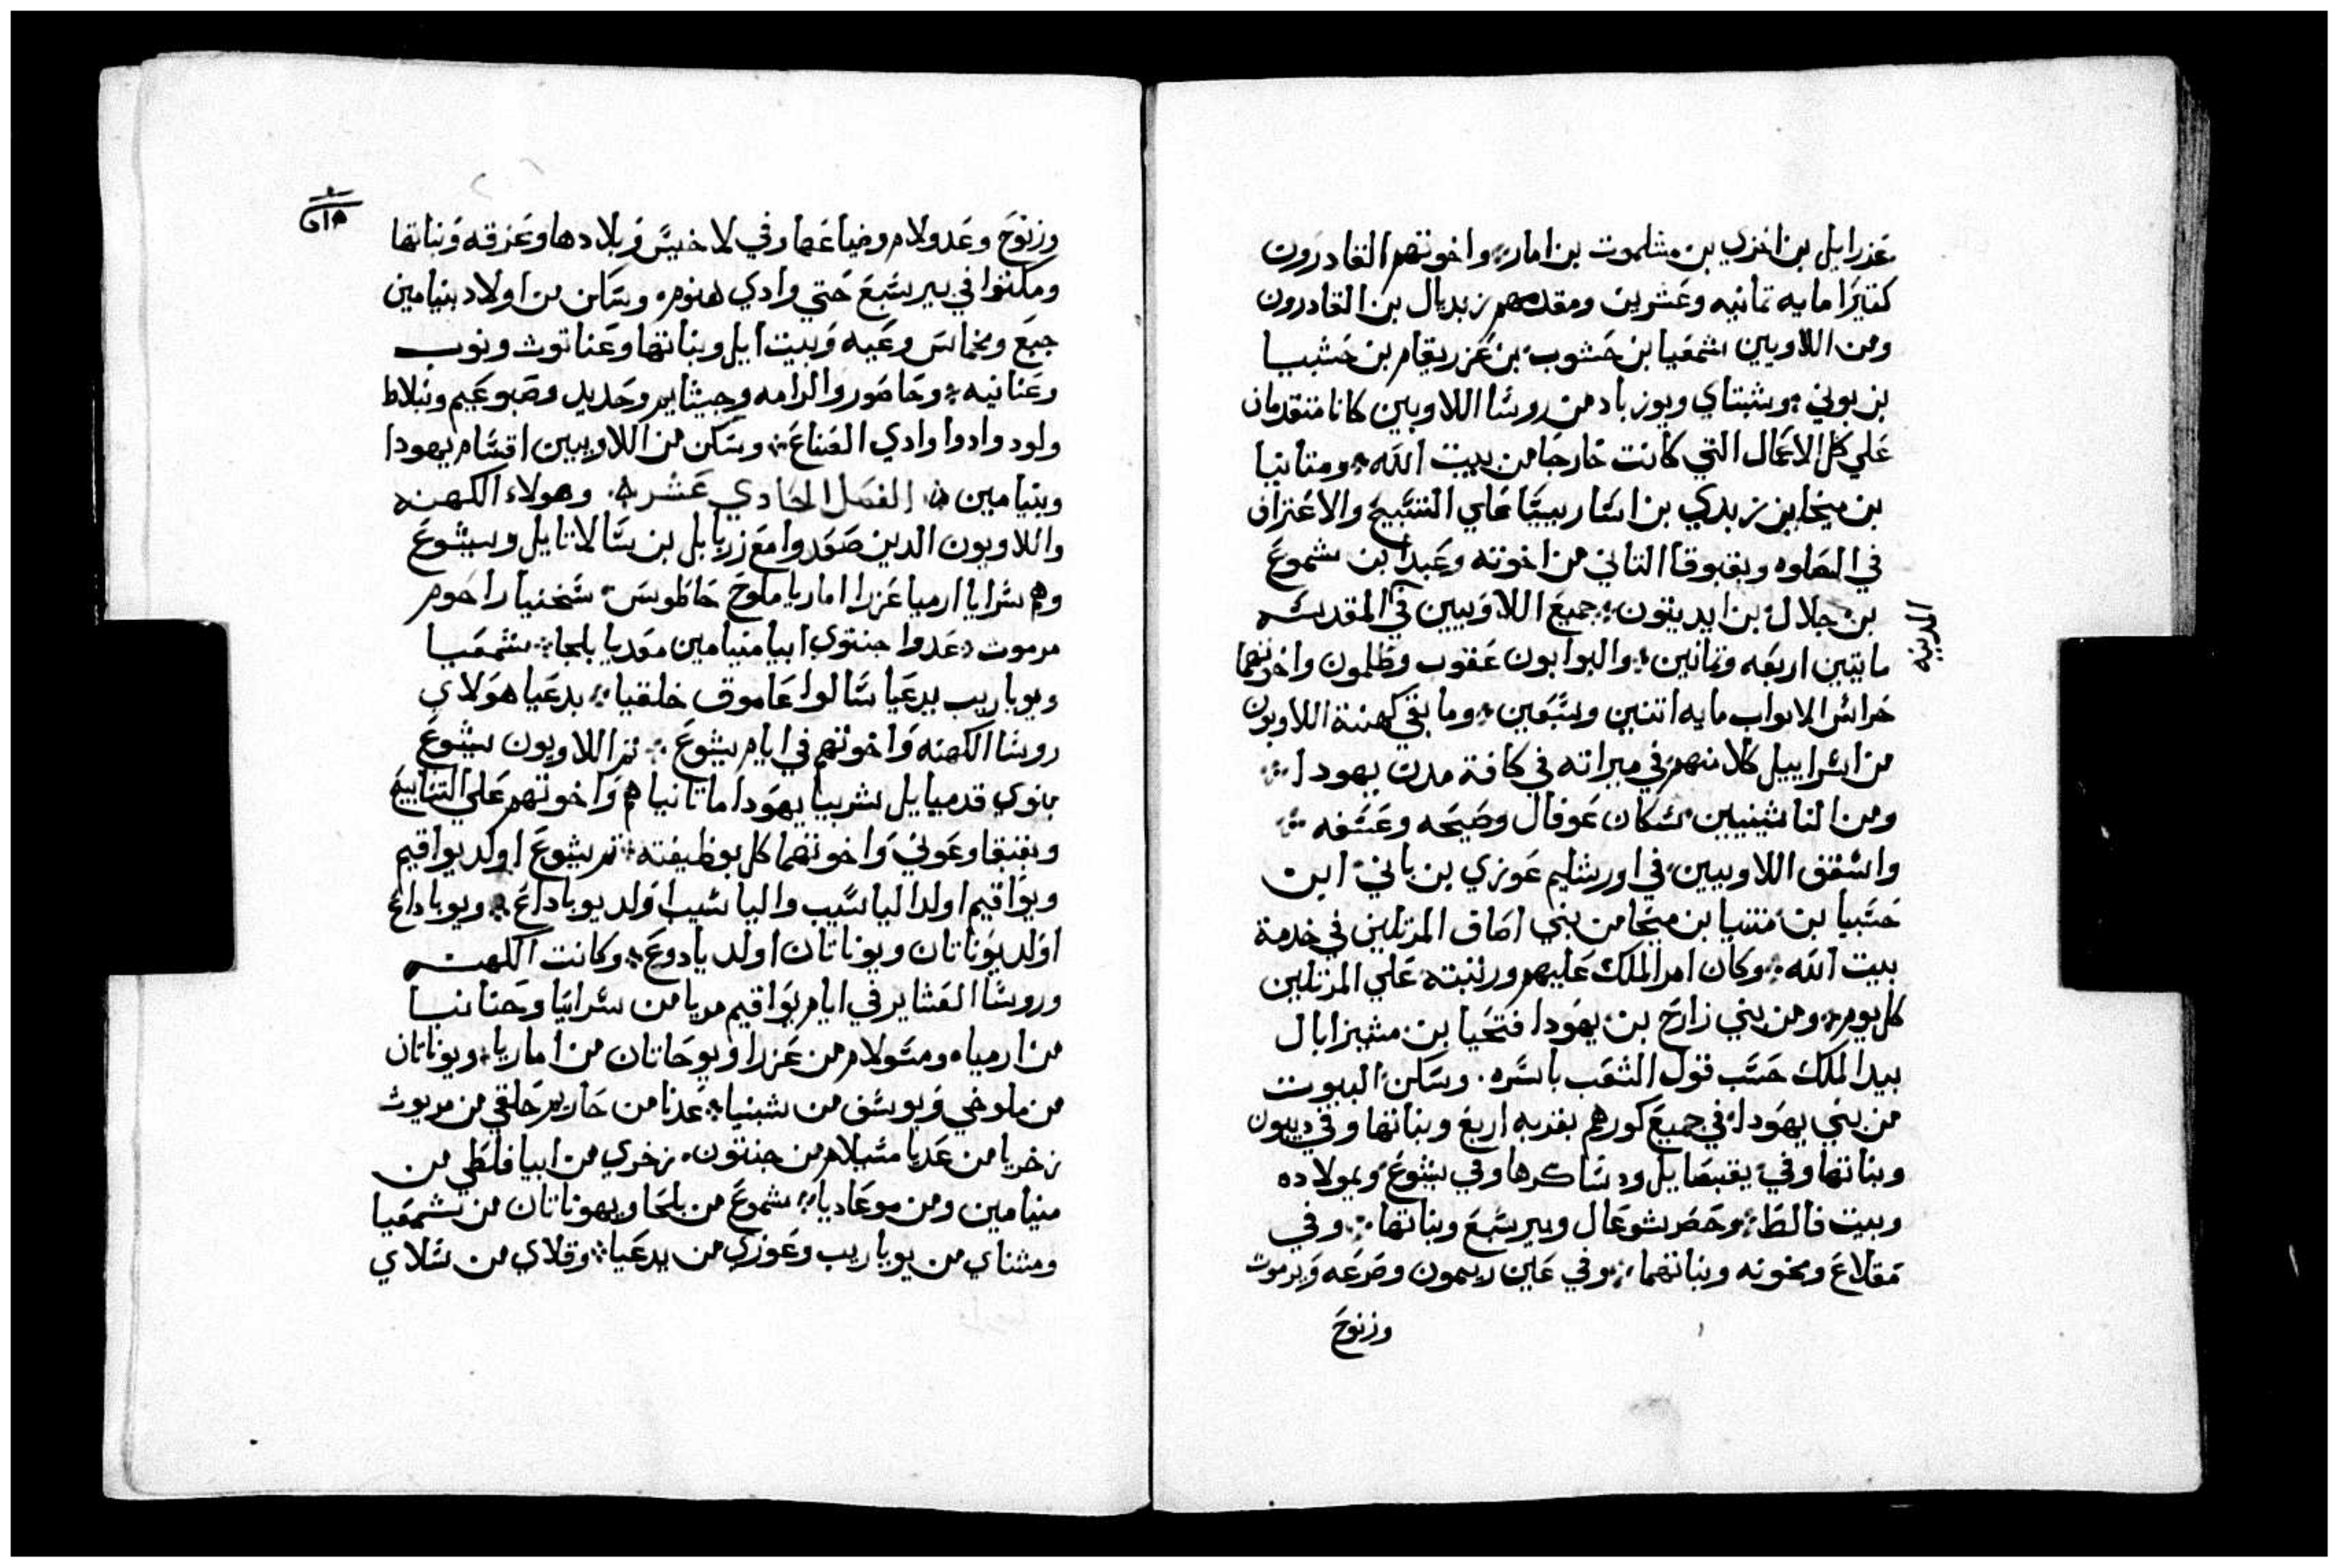 عزرايل بن اخزي بن مشلموت بن امار واخوتهم القادرون
كتيرًا مايه تمانيه وعشرين ومقدمهم زبديال بن القادرون
ومن اللاويين شمعيا بن حشوب بن عزريقام بن حشبيا
بن بوني وشبتاي ويوزباد من روسا اللاويين كانا متقدمان
علي كل الاعمال التي كانت خارجًا من بيت الله ومتانيا
بن ميخا بن زبدي بن اساف رييسًا علي التسبيح والاعتراف
في الصلوه وبقبوقا التاني من اخوته وعبدا بن شموع
بن جلال بن ايديتون جميع اللاويين في المقدسه
المدينه
مايتين اربعه وتمانين والبوابون عقوب وطلمون واخوتهما
حراس الابواب مايه اتنين وسبعين وما بقي كهنة اللاويون
من اسراييل كلا منهم في ميراته في كافة مدن يهودا
ومن الناشينيين سكان عوفال وصيحه وعسفه
واسقف اللاويين في اورشليم عوزي بن باني ابن
حسبيا بن متنيا بن ميخا من بني اصاف المرتلين في خدمة
بيت الله وكان امر الملك عليهم ورتبته علي المرتلين
كل يوم ومن بني زارح بن يهودا فتحيا بن مشيزابال
بيد الملك حسب قول الشعب باسره وسكن البيوت
من بني يهودا في جميع كورهم بقريه اربع وبناتها وفي ديبون
وبناتها وفي يقبصايل ودساكرها وفي يشوع ويمولاده
وبيت فالط وحصر شوعال وبير سبع وبناتها وفي
مقلاع ومخونه وبناتهما وفي عاين ريمون وصرعه ويرموت
وزنوح
وزنوح وعدولام وضياعها وفي لاخيس وبلادها وعزقه وبناتها
ومكتوا في بير سبع حتي وادي هنوم وسكن من اولاد بنيامين
جبع ومخماس وعيه وبيت ايل وبناتها وعناتوث ونوب
وعنانيه وحاصور والرامه وجيثايم وحديد وصبوعيم ونبلاط
ولود وادوا وادي الصناع وسكن من اللاويين اقسام يهودا
وبنيامين الفصل الحادي عشر وهولاء الكهنه
واللاويون الدين صعدوا مع زربابل بن سالاتايل ويشوع
وهم سرايا ارميا عزرا اماريا ملوخ حاطوس شخنيا راحوم
مرموت عدوا جنتوي ابيا منيامين معديا بلجا شمعيا
ويوياريب يدعيا سالوا عاموق خلقيا يدعيا هولاي
روسا الكهنه واخوتهم في ايام يشوع تم اللاويون يشوع
بنوي قدميايل شربيا يهودا ماتانيا هم واخوتهم علي التسابيح
وبقبقا وعوني واخوتهما كل بوظيفته تم يشوع اولد يواقيم
ويواقيم اولد الياسيب والياسيب اولد يوياداع ويوياداع
اولد يوناتان ويوناتان اولد يادوع وكانت الكهنه
وروسا العشاير في ايام يواقيم مريا من سرايا وحنانيا
من ارمياه ومسولام من عزرا ويوحاتان من اماريا ويوناتان
من ملوخي ويوسف من شبنيا عدنا من حاريم حلقي من مريوث
زخريا من عديا مشلام من جنتون زخري من ابيا فلطي من
منيامين ومن موعاديا شموع من بلجا ويهوناتان من شمعيا
ومتناي من يوياريب وعوزي من يدعيا وقلاي من سلاي